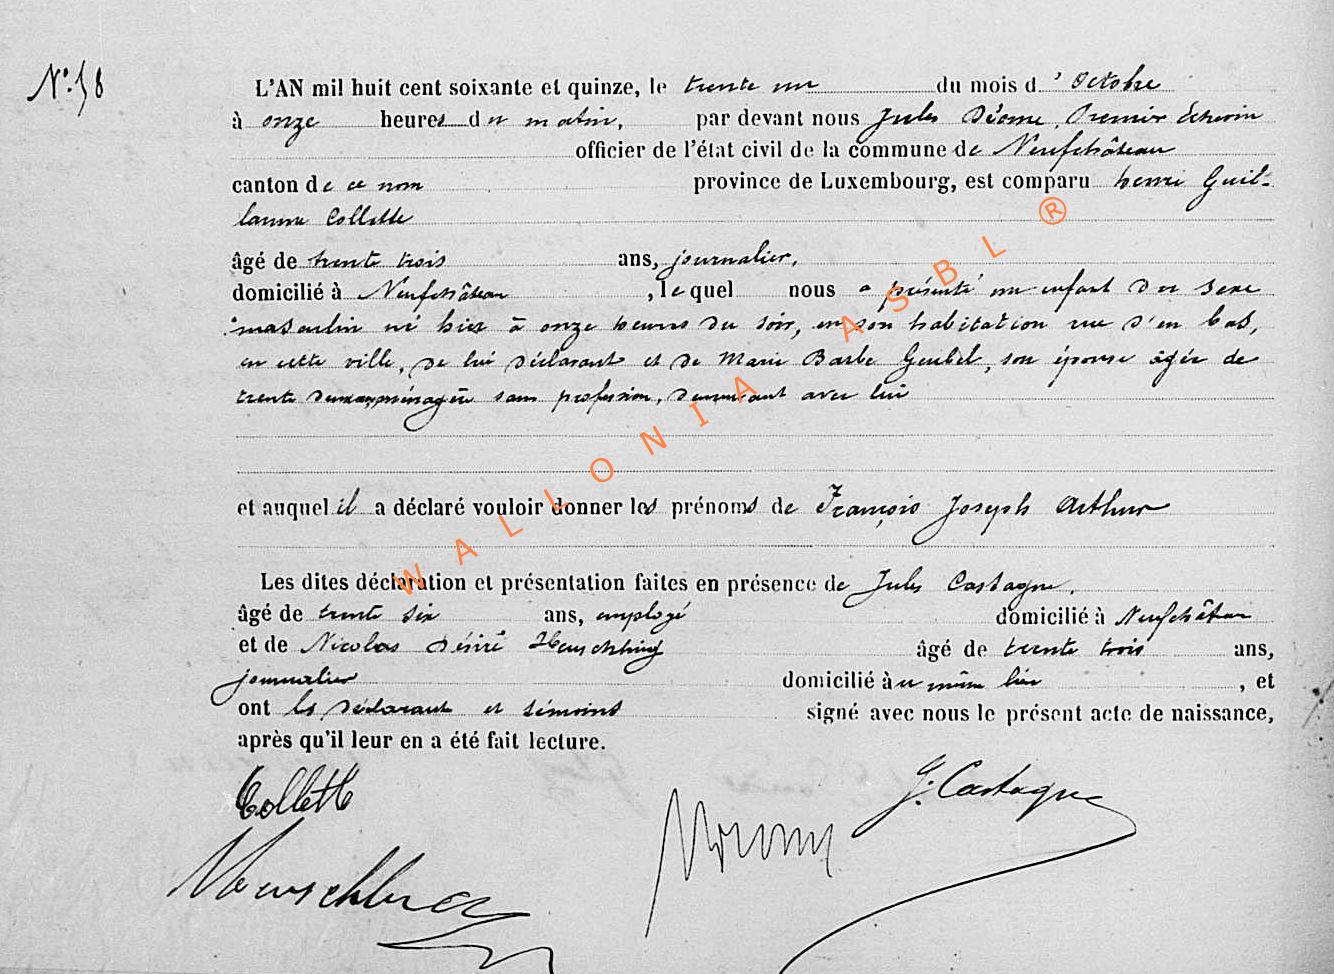 N° 58
L'AN mil huit cent soixante et quinze, le trente un du mois d'Octobre
à onze heures du matin, par devant nous Jules Déome, Premier Echevin
officier de l'état civil de la commune de Neufchâteau
canton de ce nom province de Luxembourg, est comparu henri Guil-
laume Collette
âgé de trente trois ans, journalier,
domicilié à Neufchâteau, lequel nous a présenté un enfant du sexe
masculin né hier à onze heures du soir, en son habitation rue d'en bas,
en cette ville, de lui déclarant et de Marie Barbe Geubel, son épouse âgée de
trente ménagère sans profession, demeurant avec lui
et auquel il a déclaré vouloir donner les prénoms de François Joseph Arthur
Les dites déclaration et présentation faites en présence de Jules Castagne,
âgé de trente six ans, employé domicilié à Neufchâteau
et de Nicolas Désiré âgé de trente trois ans,
journalier domicilié au même lieu, et
ont les déclarant et témoins signé avec nous le présent acte de naissance,
après qu'il leur en a été fait lecture.
Collette
J. Castagne
WALLONIA ASBL ®